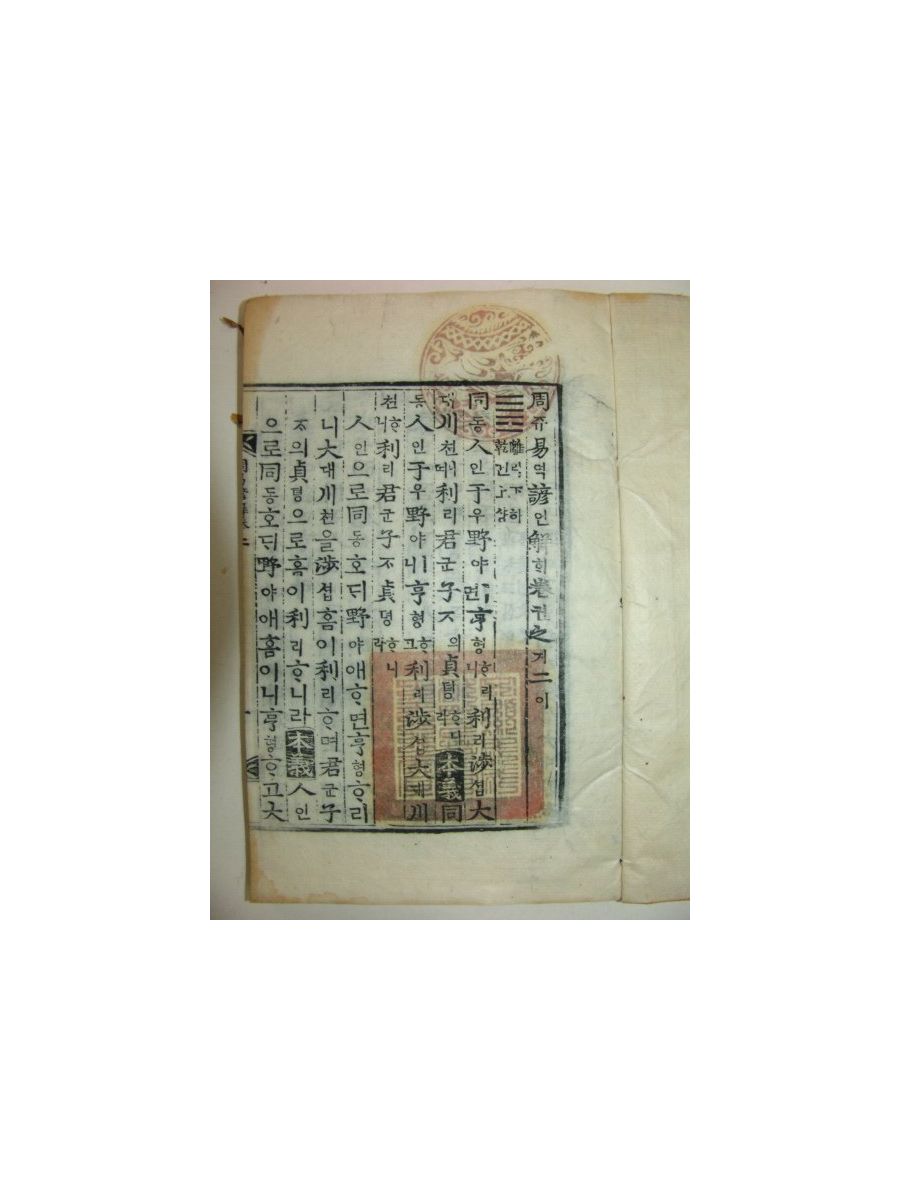 周쥬易역諺언解ᄒᆡ卷권之지二이
離리下하
乾건上샹
同동人인于우野야ㅣ면亨형ᄒᆞ리니利리涉셥大
대川쳔이니利리君군子ᄌᆞ의貞뎡ᄒᆞ니라本義同
동人인于우野야ㅣ니亨형ᄒᆞ고利리涉셥大대川
쳔ᄒᆞ니利리君군子ᄌᆞ貞뎡ᄒᆞ니라
人인으로同동호ᄃᆡ野야애ᄒᆞ면亨형ᄒᆞ리
니大대川쳔을涉셥홈이利리ᄒᆞ며君군子
ᄌᆞ의貞뎡으로홈이利리ᄒᆞ니라本義人인
으로同동호ᄃᆡ野야애홈이니亨형ᄒᆞ고大